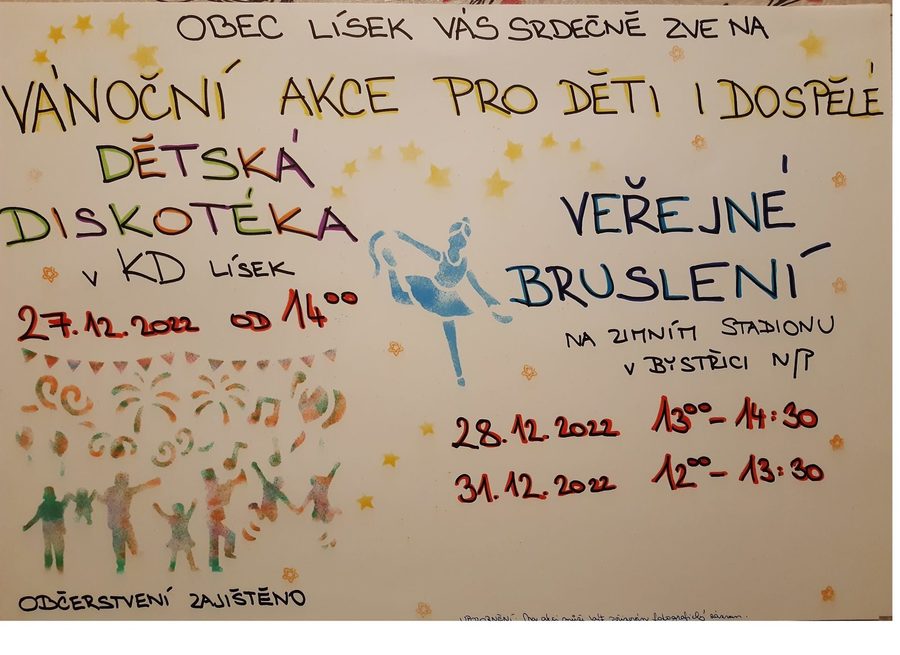 OBEC LÍSEK VÁS SRDEČNĚ ZVE NA
VÁNOČNÍ AKCE PRO DĚTI I DOSPĚLÉ
DĚTSKÁ
DISKOTÉKA
V KD LÍSEK
27.12.2022 OD 14⁰⁰
OBČERSTVENÍ ZAJIŠTĚNO
VEŘEJNÉ
BRUSLENÍ
NA ZIMNÍM STADIONU
V BYSTŘICI N/P
28.12.2022 13⁰⁰ - 14:30
31.12.2022 12⁰⁰ - 13:30
UPOZORNĚNÍ: Na akci může být pořizován fotografický záznam.